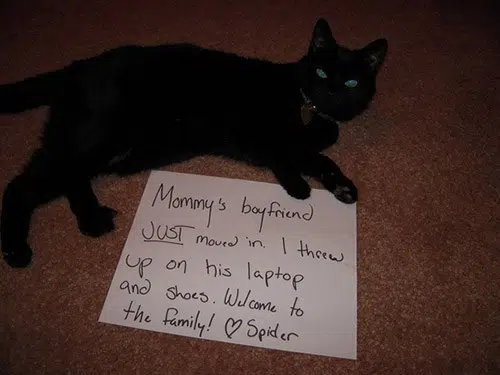 Mommy's boyfriend
JUST moved in. I threw
up on his laptop
and shoes. Welcome to
the family! ♡ Spider